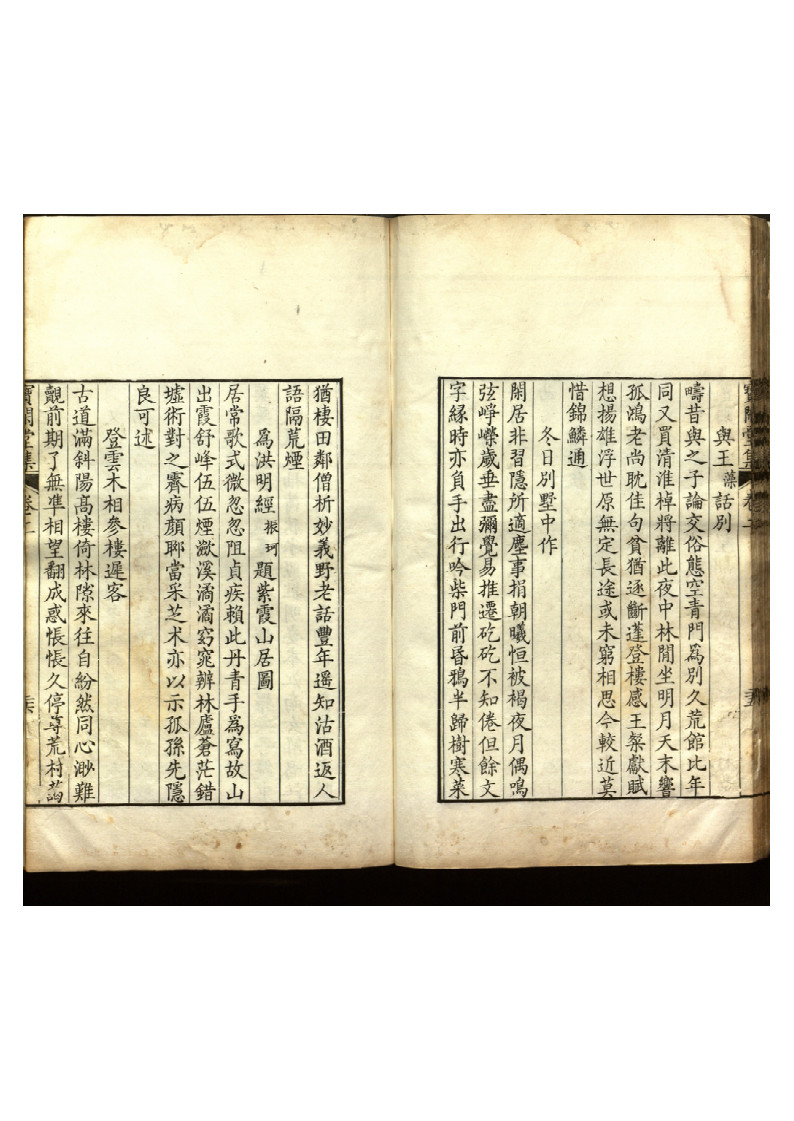 寶閑堂集 卷二 二十五
與王藻話別
疇昔與之子論交俗態空青門為別久荒館比年
同又買清淮棹將離此夜中林閒坐明月天末響
孤鴻老尚耽佳句貧猶逐斷蓬登樓感王粲獻賦
想揚雄浮世原無定長途或未窮相思今較近莫
惜錦鱗通
冬日別墅中作
閑居非習隱所適塵事捐朝曦恒被褐夜月偶鳴
弦崢嶸歲垂盡彌覺易推遷矻矻不知倦但餘文
字緣時亦負手出行吟柴門前昏鴉半歸樹寒菜
猶棲田鄰僧析妙義野老話豐年遥知沽酒返人
語隔荒煙
為洪明經振珂題紫霞山居圖
居常歌式微忽忽阻貞疾賴此丹青手為寫故山
出霞舒峰伍伍煙澂溪潏潏窈窕辨林廬蒼茫錯
墟術對之霽病顔聊當采芝术亦以示孤孫先隱
良可述
登雲木相參樓遲客
古道滿斜陽高樓倚林隙來往自紛然同心渺難
覿前期了無準相望翻成惑悵悵久停尊荒村藹
寶閑堂集 卷二 二十六